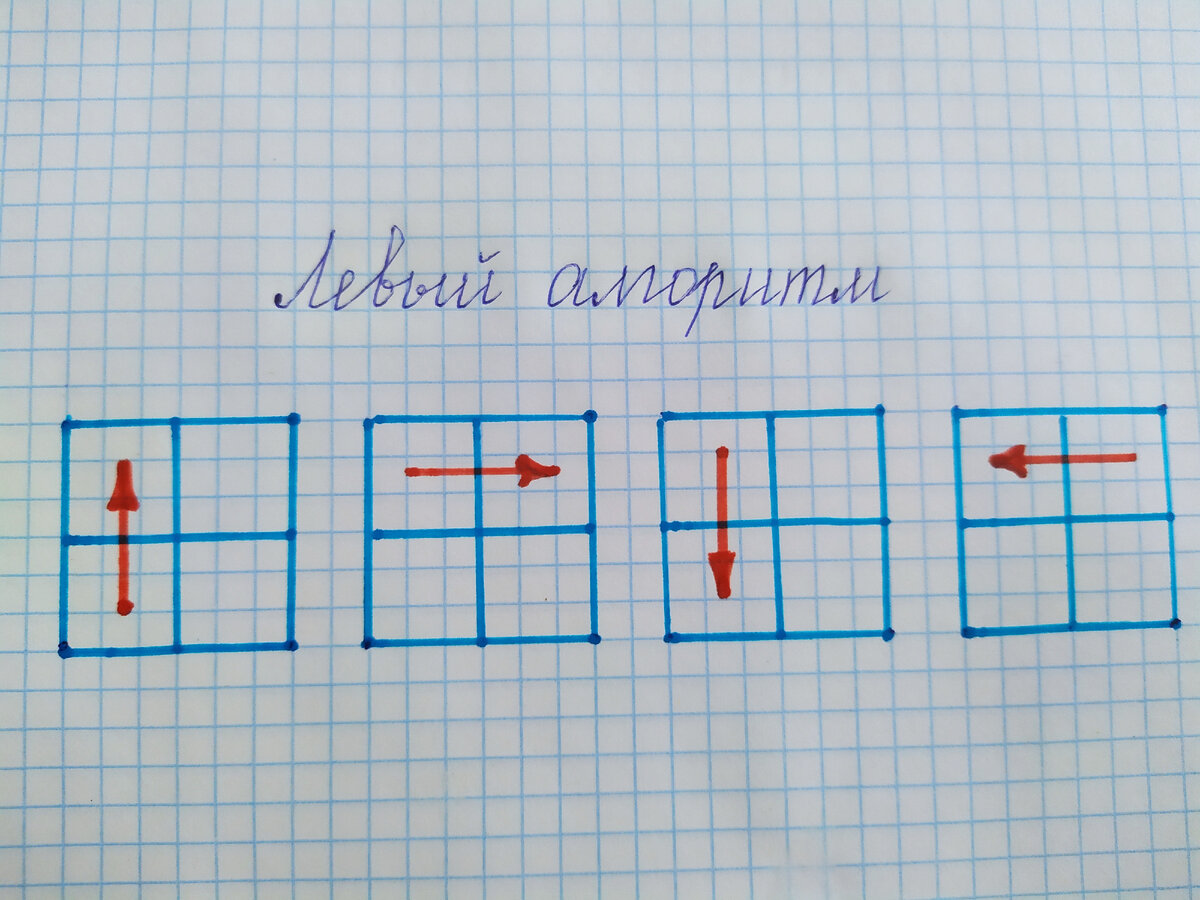 Левый алгоритм